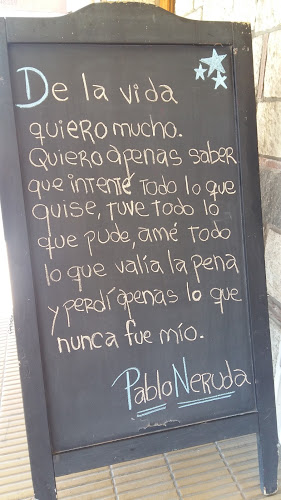 De la vida
quiero mucho.
Quiero apenas saber
que intenté todo lo que
quise, tuve todo lo
que pude, amé todo
lo que valía la pena
y perdí apenas lo que
nunca fue mío.
Pablo Neruda